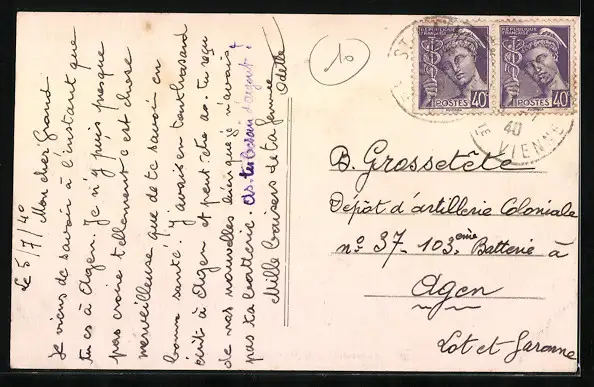 le 5/7/40
Mon cher Grand
Je viens de savoir à l'instant que
tu es à Agen. Je n'y puis presque
pas croire tellement c'est chose
merveilleuse que de te savoir en
bonne santé. J'avais en tout hasard
écrit à Agen et peut-être as-tu reçu
de nos nouvelles bien que je n'avais
pas ta batterie. As-tu besoin d'argent ?
Mille baisers de ta femme
Odette
10
RÉPUBLIQUE FRANÇAISE
POSTES 40c
RÉPUBLIQUE FRANÇAISE
POSTES 40c
40
VIENNE
B. Grossetête
Dépôt d'artillerie Coloniale
n° 37 - 103ème Batterie à
Agen
Lot et Garonne